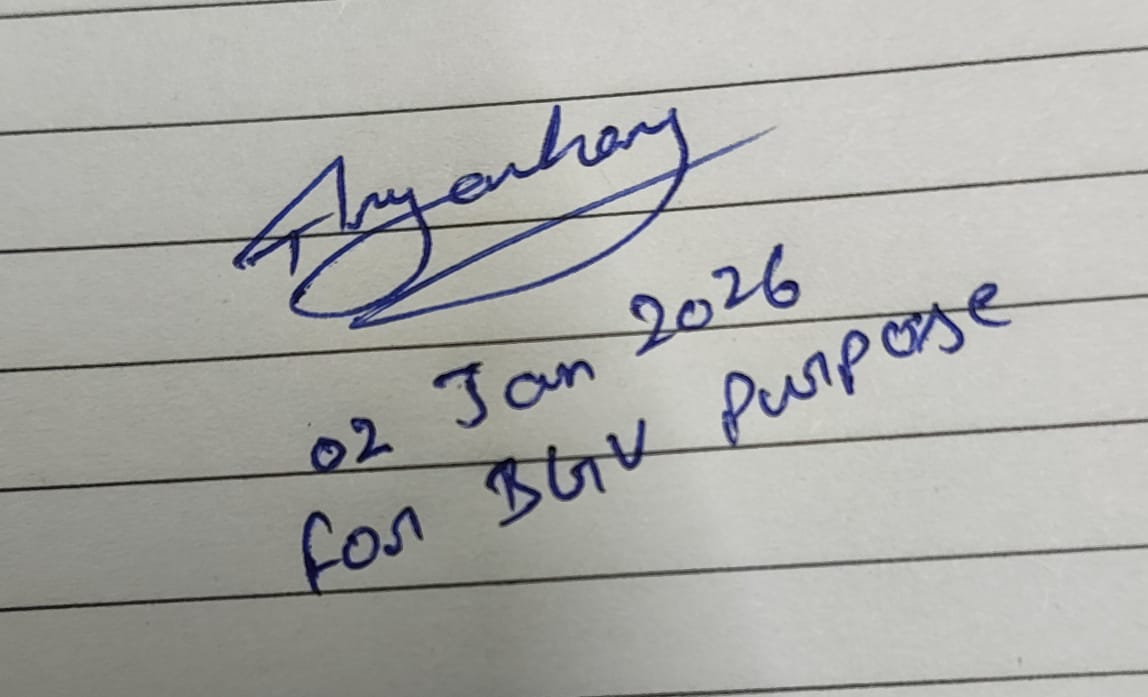 02 Jan 2026
for BGV purpose